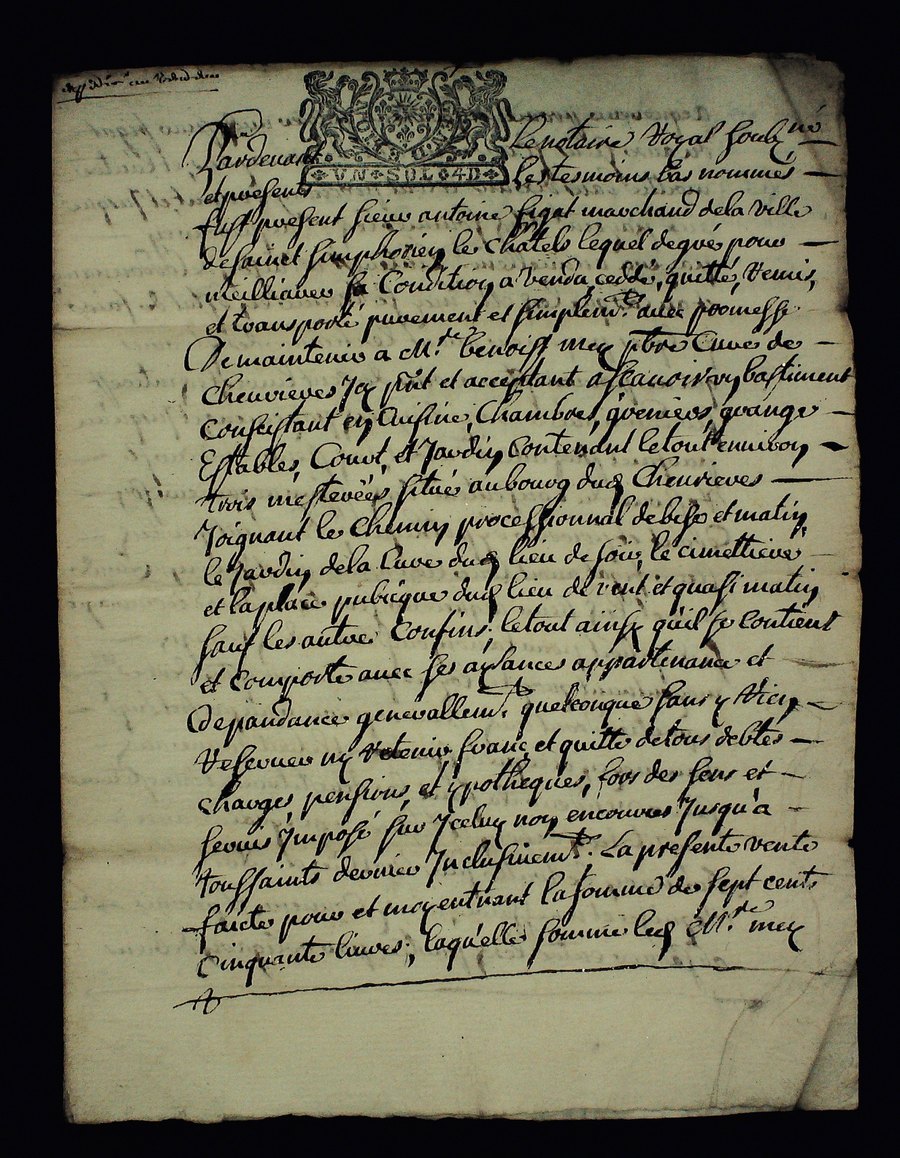 Pardevant Le notaire Royal soubz né
et presents Les tesmoins bas nommés
fust present sieur antoine figat marchand de la ville
de sainct simphorien le châtel lequel de gré pour
meilliaurer sa Condition a vendu, ceddé, quitté, remis,
et transporté purement et simplemt. avec promesse
De maintenir a Mre. benoist mey ptbre Curé de
Chevrieres Icy pnt et acceptant ascavoir un bastiment
Consistant en Cuisine, Chambres, greniers, grange
Estables, Court, et Jardin Contenant le tout environ
trois mesterées, situé au bourg dud Chevrieres
Joignant le Chemin processionnal de bise et matin,
le Jardin de la Cure dud lieu de soir, le cimettiere
et la place publicque dud lieu de vent et quasi matin
sauf les autres Confins; le tout ainsy qu'il se Contient
et Comporte avec ses aysances appartenance et
Dépandance generallemt. quelconque sans y Rien
Reserver ny Retenir, franc et quitte de tous debtes
charges, pensions, et ypotheques, fors des sens et
servis Imposé sur Iceluy non encourus Jusqu'a
toussaints dernier Inclusivemt. La presente vente
faicte pour et moyennant la somme de sept cents
Cinquante livres; laquelle somme led Mre. mey
VN SOL 4D